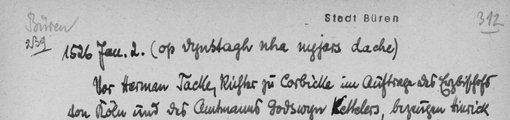 Stadt Büren
Büren
312
239
1526 Jan. 2. (op dynstagh nha nyjars dache)
Vor Herman Tacke, Richter zu Corbicke im Auftrage des Erzbischofs
von Köln und des Amtmanns Godswyn Kettelers, bezeugen Hinrick